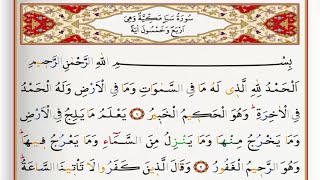 سُورَةُ سَبَإٍ مَكِّيَّةٌ وَهِيَ
اَرْبَعٌ وَخَمْسُونَ اٰيَةً
بِسْمِ اللّٰهِ الرَّحْمٰنِ الرَّحِيمِ
اَلْحَمْدُ لِلّٰهِ الَّذٖى لَهُ مَا فِى السَّمٰوَاتِ وَمَا فِى الْاَرْضِ وَلَهُ الْحَمْدُ
فِى الْاٰخِرَةِ وَهُوَ الْحَكٖيمُ الْخَبٖيرُ ١ يَعْلَمُ مَا يَلِجُ فِى الْاَرْضِ
وَمَا يَخْرُجُ مِنْهَا وَمَا يَنْزِلُ مِنَ السَّمَٓاءِ وَمَا يَعْرُجُ فٖيهَا
وَهُوَ الرَّحٖيمُ الْغَفُورُ ٢ وَقَالَ الَّذٖينَ كَفَرُوا لَا تَأْتٖينَا السَّاعَةُ